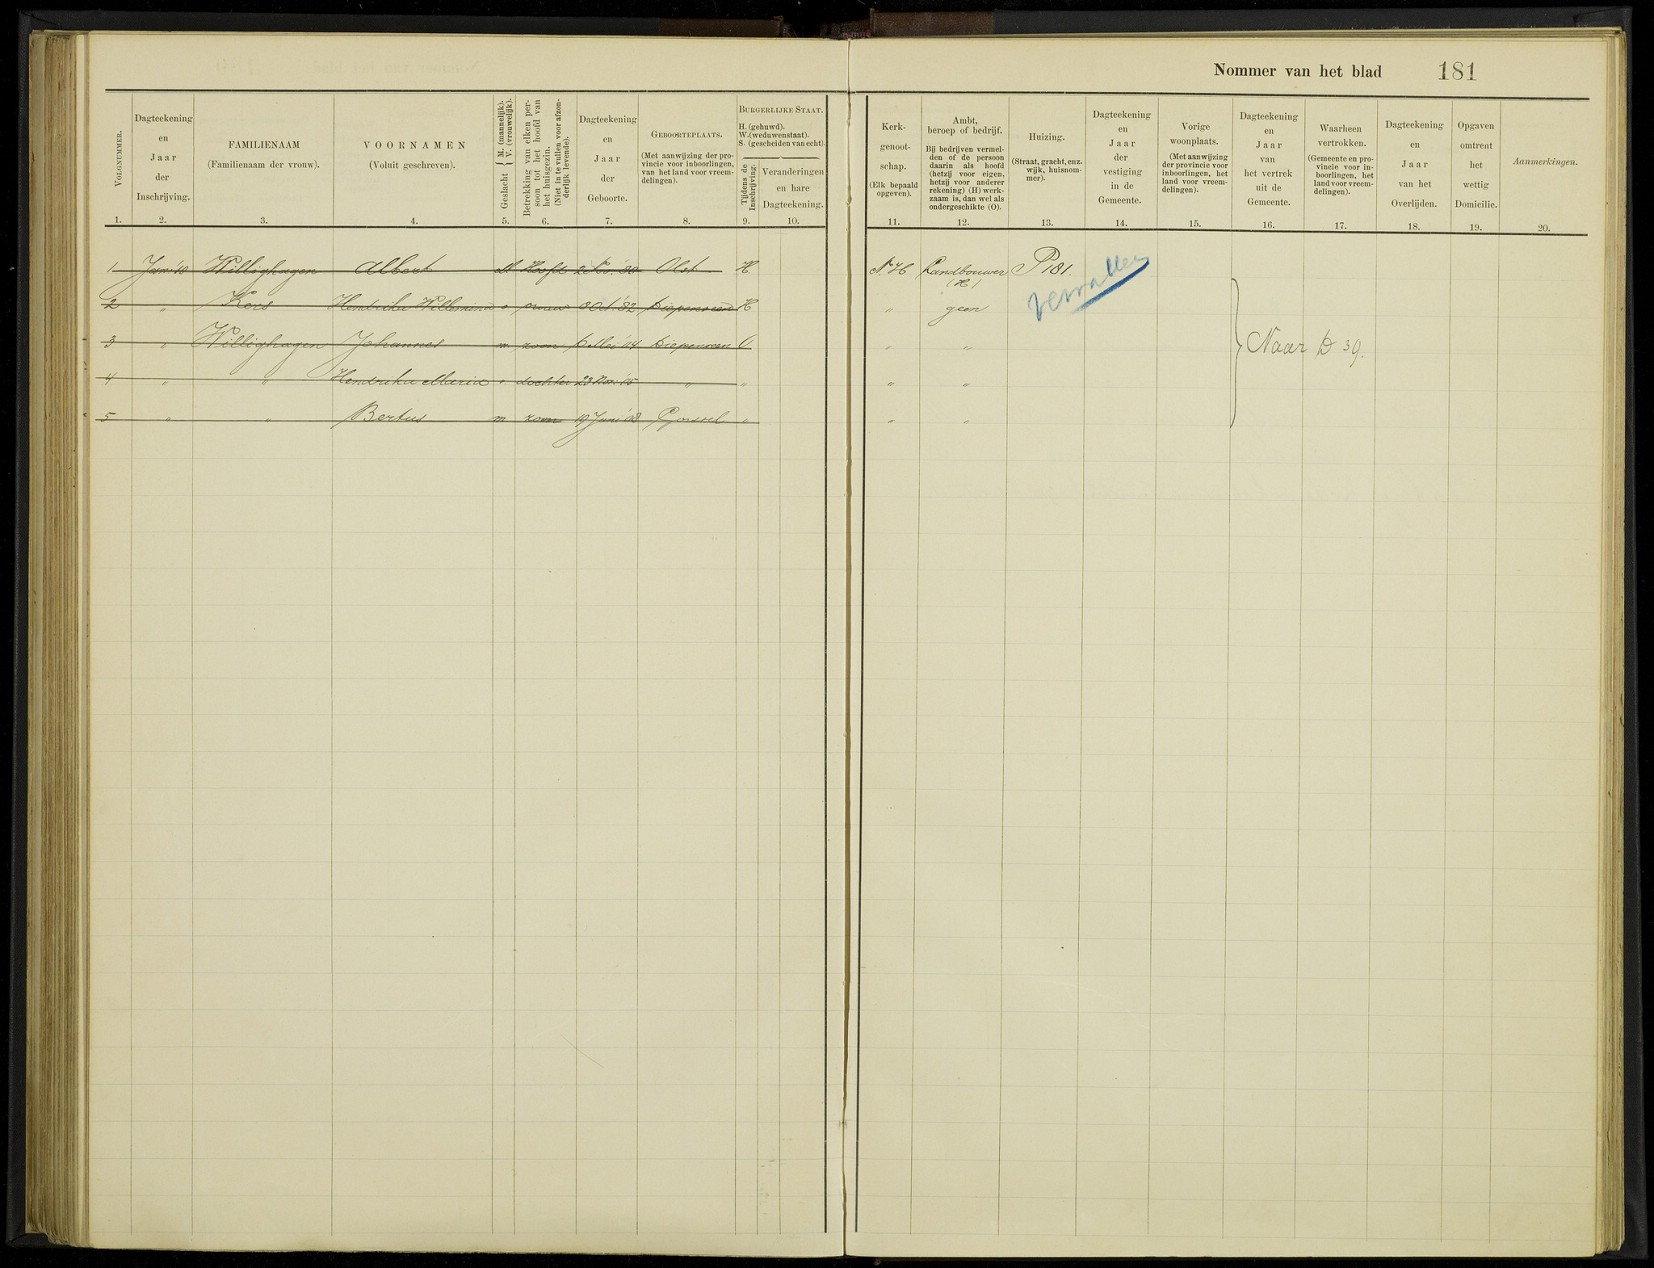 Nommer van het blad 181
VOLGNUMMER.
1.
Dagteekening
en
Jaar
der
Inschrijving.
2.
FAMILIENAAM
(Familienaam der vrouw).
3.
VOORNAMEN
(Voluit geschreven).
4.
Geslacht { M. (mannelijk). V. (vrouwelijk).
5.
Betrekking van elken per-
soon tot het hoofd van
het huisgezin.
(Niet in te vullen voor afzon-
derlijk levenden).
6.
Dagteekening
en
Jaar
der
Geboorte.
7.
GEBOORTEPLAATS.
(Met aanwijzing der pro-
vincie voor inboorlingen,
van het land voor vreem-
delingen).
8.
BURGERLIJKE STAAT.
H. (gehuwd).
W. (weduwenstaat).
S. (gescheiden van echt).
Tijdens de
Inschrijving.
9.
Veranderingen
en hare
Dagteekening.
10.
Kerk-
genoot-
schap.
(Elk bepaald
opgeven).
11.
Ambt,
beroep of bedrijf.
Bij bedrijven vermel-
den of de persoon
daarin als hoofd
(hetzij voor eigen,
hetzij voor anderer
rekening) (H) werk-
zaam is, dan wel als
ondergeschikte (O).
12.
Huizing.
(Straat, gracht, enz.
wijk, huisnom-
mer).
13.
Dagteekening
en
Jaar
der
vestiging
in de
Gemeente.
14.
Vorige
woonplaats.
(Met aanwijzing
der provincie voor
inboorlingen, het
land voor vreem-
delingen).
15.
Dagteekening
en
Jaar
van
het vertrek
uit de
Gemeente.
16.
Waarheen
vertrokken.
(Gemeente en pro-
vincie voor in-
boorlingen, het
land voor vreem-
delingen).
17.
Dagteekening
en
Jaar
van het
Overlijden.
18.
Opgaven
omtrent
het
wettig
Domicilie.
19.
Aanmerkingen.
20.
1 Juni '10 Willighagen Albert M Hoofd Olst H N.H Landbouwer P 181.
(H)
vervallen
2 " Hendrika Willemina v vrouw Oct '82 Diepenveen H " geen
3 " Willighagen Johannes m zoon 6 Mei '04 Diepenveen O " "
Naar D 39.
4 " " Hendrika Maria v dochter 23 Nov '05 " " " "
5 " " Bertus m zoon 19 Juni '08 Gorssel " " "